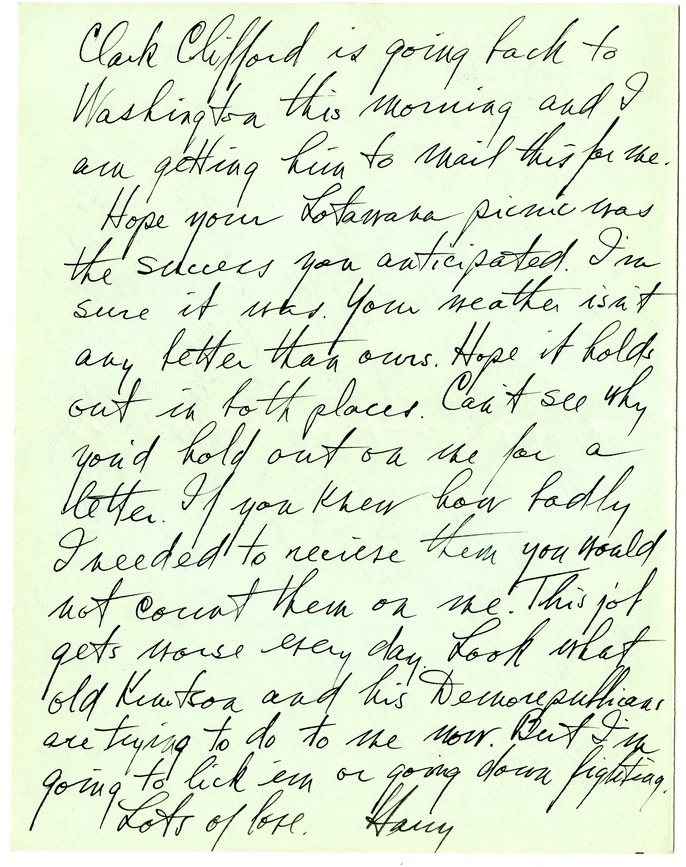 Clark Clifford is going back to
Washington this morning and I
am getting him to mail this for me.
Hope your Lotawana picnic was
the success you anticipated. I'm
sure it was. Your weather isn't
any better than ours. Hope it holds
out in both places. Can't see why
you'd hold out on me for a
letter. If you knew how badly
I needed to recieve them you would
not count them on me. This job
gets worse every day. Look what
old Knutson and his Demorepublicans
are trying to do to me now. But I'm
going to lick 'em or going down fighting.
Lots of love. Harry